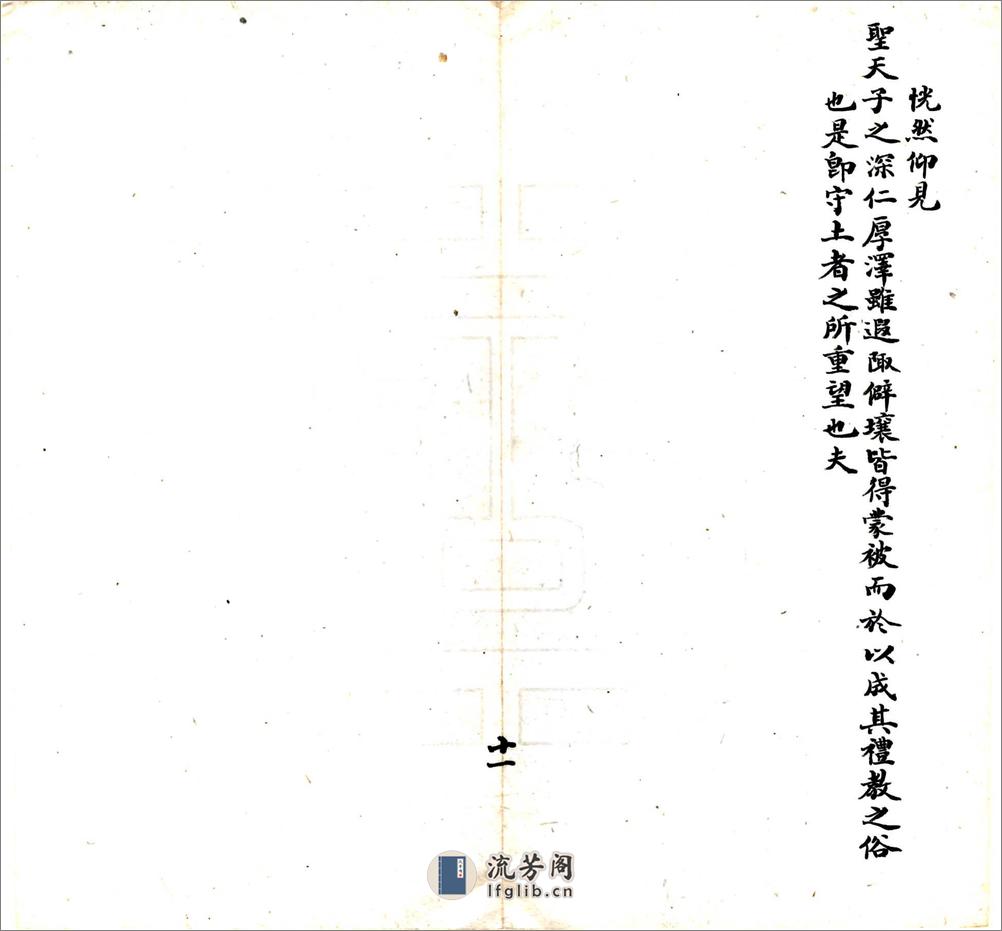 恍然仰見
聖天子之深仁厚澤雖遐陬僻壤皆得蒙被而於以成其禮教之俗
也是卽守土者之所重望也夫
十一
流芳阁
lfglib.cn